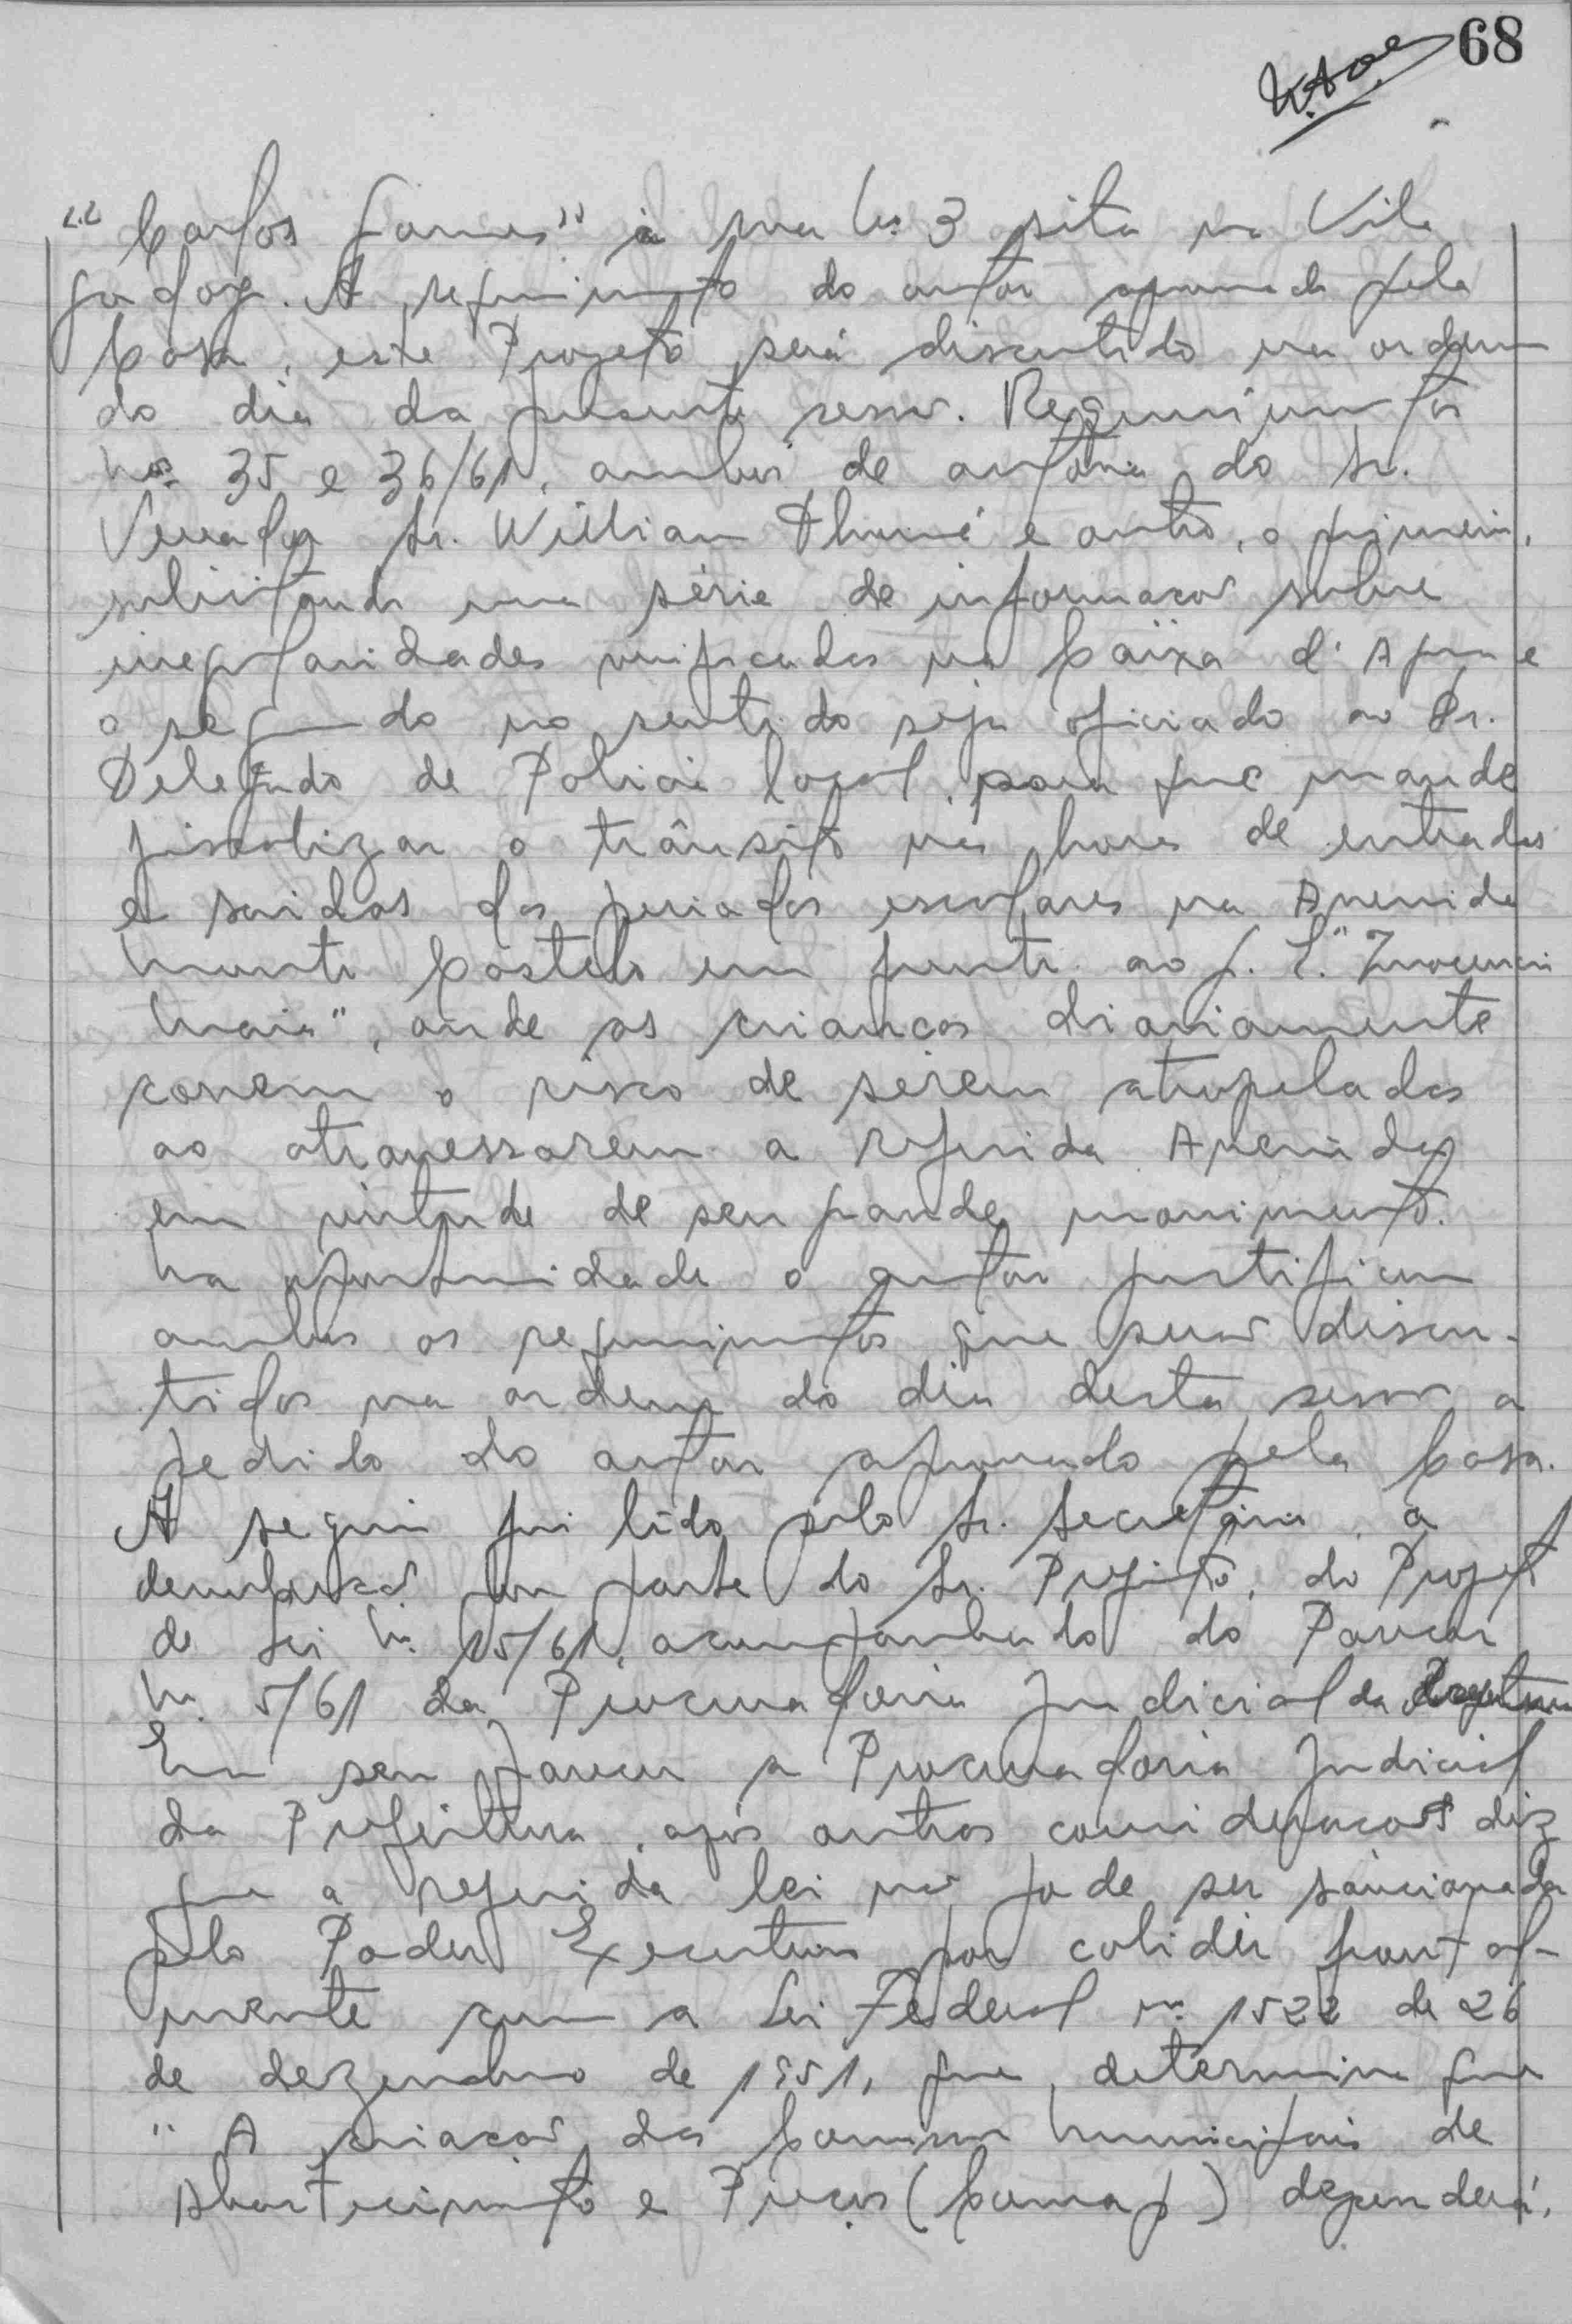 68
"Carlos Gomes" à rua No. 3 sita na Vila
Godoy. A requerimento do autor aprovado pela
Casa, este Projeto será discutido na ordem
do dia da presente sessão. Requerimentos
Nos. 35 e 36/61, ambos de autoria do Sr.
Vereador Sr. Willian Thomé e outro, o primeiro,
solicitando uma série de informações sobre
irregularidades verificadas na Caixa d'Agua e
o segundo no sentido seja oficiado ao Dr.
Delegado de Policia local, para que mande
fiscalizar o trânsito nas horas de entradas
e saidas dos periodos escolares na Avenida
Monte Castelo em frente ao G. E. "Inocencio
Maia", onde as crianças diariamente
correm o risco de serem atropelados
ao atravessarem a referida Avenida
em virtude de seu grande movimento.
Na oportunidade o autor justificou
ambos os requerimentos que serão discu-
tidos na ordem do dia desta sessão a
pedido do autor aprovado pela Casa.
A seguir foi lido pelo Sr. Secretário, a
devolução por parte do Sr. Prefeito, do Projeto
de Lei N. 15/61, acompanhado do Parecer
N. 5/61 da Procuradoria Judicial da
Em seu parecer a Procuradoria Judicial
da Prefeitura, após outras considerações diz
que a referida lei não pode ser sancionada
pelo Poder Executivo por colidir frontal-
mente com a Lei Federal n. 1522 de 26
de dezembro de 1951, que determina que
"A criação das Comissões Municipais de
Abastecimento e Preços (Comap) dependerá,